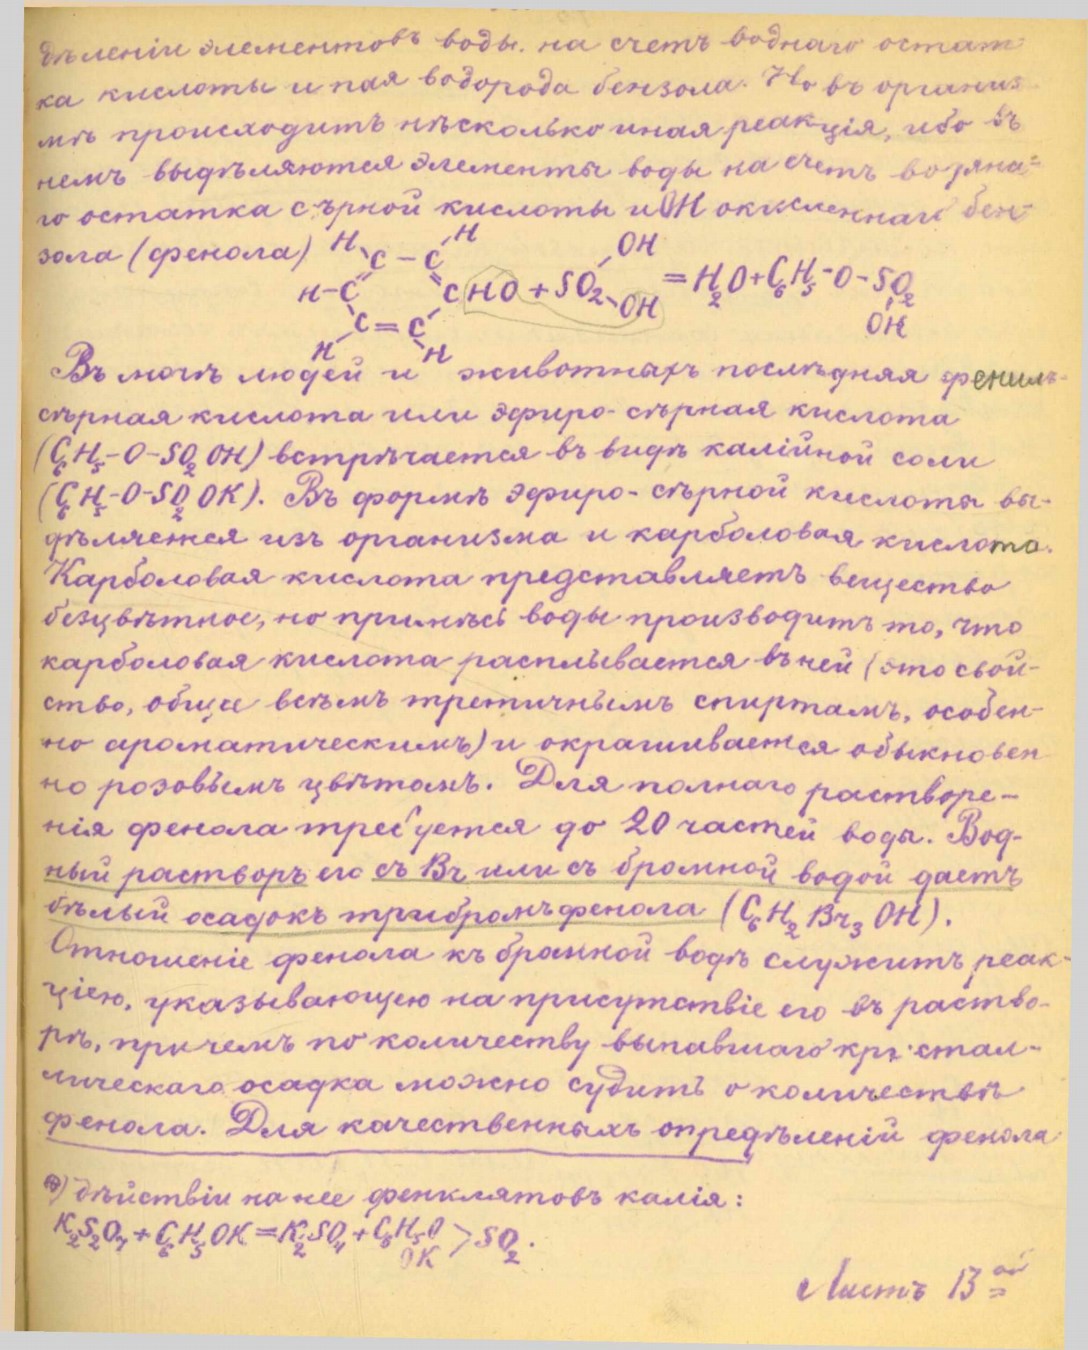 дѣленіи элементовъ воды на счетъ воднаго остат-
ка кислоты и пая водорода бензола. Но въ организ-
мѣ происходитъ нѣсколько иная реакція, ибо въ
немъ выдѣляются элементы воды на счетъ водяна-
го остатка сѣрной кислоты и ОН окисленнаго бен-
зола (фенола)
H H
C – C
H–C C HO + SO2 OH OH = H2O + C6H5–O–SO2 OH
C = C
H H
Въ мочѣ людей и животныхъ послѣдняя фенилъ-
сѣрная кислота или эфиро-сѣрная кислота
(C6H5–O–SO2OH) встрѣчается въ видѣ калійной соли
(C6H5–O–SO2OK). Въ формѣ эфиро-сѣрной кислоты вы-
дѣляется изъ организма и карболовая кислота.
Карболовая кислота представляетъ вещество
безцвѣтное, но примѣсь воды производитъ то, что
карболовая кислота расплывается въ ней (это свой-
ство, общее всѣмъ третичнымъ спиртамъ, особен-
но ароматическимъ) и окрашивается обыкновен
но розовымъ цвѣтомъ. Для полнаго растворе-
нія фенола требуется до 20 частей воды. Вод-
ный растворъ его съ Br или съ бромной водой даетъ
бѣлый осадокъ трибромъфенола (C6H2Br3OH).
Отношеніе фенола къ бромной водѣ служитъ реак-
ціею, указывающею на присутствіе его въ раство-
рѣ, причемъ по количеству выпавшаго кристал-
лическаго осадка можно судить о количествѣ
фенола. Для качественныхъ опредѣленій фенола
*) дѣйствіи на нее фенклятовъ калія:
K2S2O7 + C6H5OK = K2SO4 + C6H5O OK > SO2.
Листъ 13ой